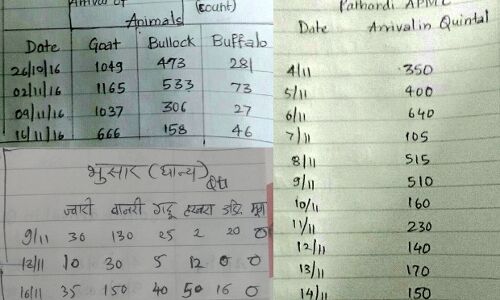 Arrival of (count)
Animals
Date Goat Bullock Buffalo
26/10/16 1049 473 281
02/11/16 1165 533 73
09/11/16 1037 306 27
666 158 46
भुसार (धान्य)
Qtl
ज्वारी बाजरी गहू हरभरा मूग
9/11 30 130 25 2 20 0
12/11 10 30 5 12 0 0
16/11 35 150 40 50 16 0
Pathardi APMC
Date Arrival in Quintal
4/11 350
5/11 400
6/11 640
7/11 105
8/11 515
9/11 510
10/11 160
11/11 230
12/11 140
13/11 170
14/11 150